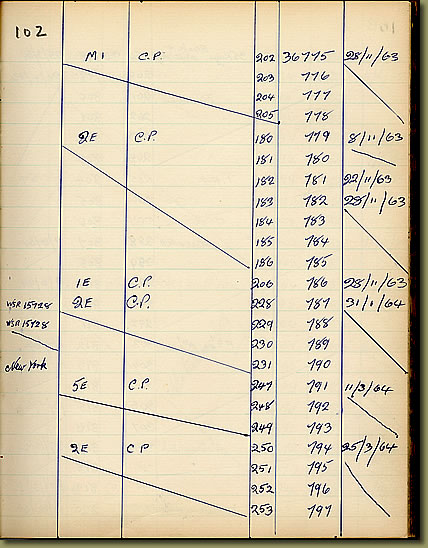 102
M1 C.P. 202 36775 28/11/63
203 776
204 777
205 778
2E C.P. 180 779 8/11/63
181 780
182 781 22/11/63
183 782 28/11/63
184 783
185 784
186 785
1E C.P. 206 786 28/11/63
WSR 15928 2E C.P. 228 787 31/1/64
WSR 15928 229 788
230 789
New York 231 790
5E C.P. 247 791 11/3/64
248 792
249 793
2E C P 250 794 25/3/64
251 795
252 796
253 797